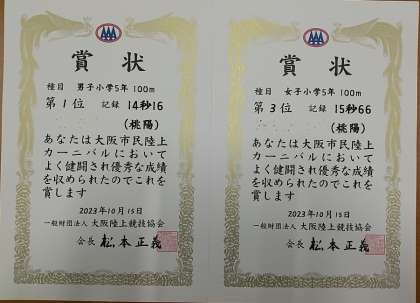 賞状
種目 男子小学5年 100m
第1位 記録 14秒16
(桃陽)
あなたは大阪市民陸上
カーニバルにおいて
よく健闘され優秀な成績
を収められたのでこれを
賞します
2023年10月15日
一般財団法人 大阪陸上競技協会
会長 松本正義
賞状
種目 女子小学5年 100m
第3位 記録 15秒66
(桃陽)
あなたは大阪市民陸上
カーニバルにおいて
よく健闘され優秀な成績
を収められたのでこれを
賞します
2023年10月15日
一般財団法人 大阪陸上競技協会
会長 松本正義